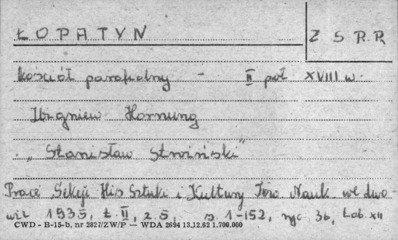 ŁOPATYN
Z S R R
Kościół parafialny - II poł XVIII w.
Zbigniew Hornung
"Stanisław Stroiński"
Prace Sekcji His Sztuki i Kultury Tow Nauk we Lwo-
wie 1935, t. II, z. 5, s. 1-152, ryc 36, tab. XII
CWD - B-15-b, nr 2827/ZW/P — WDA 2694 13.12.62 1.700.000